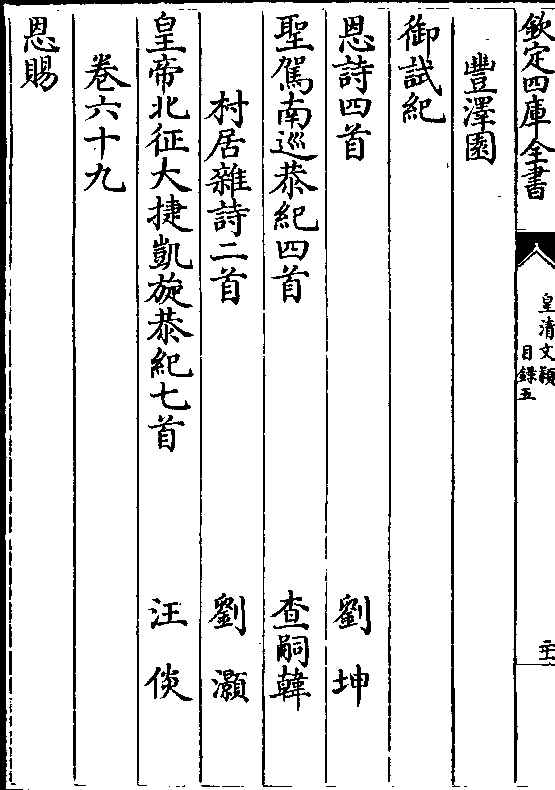 欽定四庫全書
皇清文穎
目錄五
豐澤園
御試紀
恩詩四首 劉坤
聖駕南巡恭紀四首 查嗣韓
村居雜詩二首 劉灝
皇帝北征大捷凱旋恭紀七首 汪倓
卷六十九
恩賜